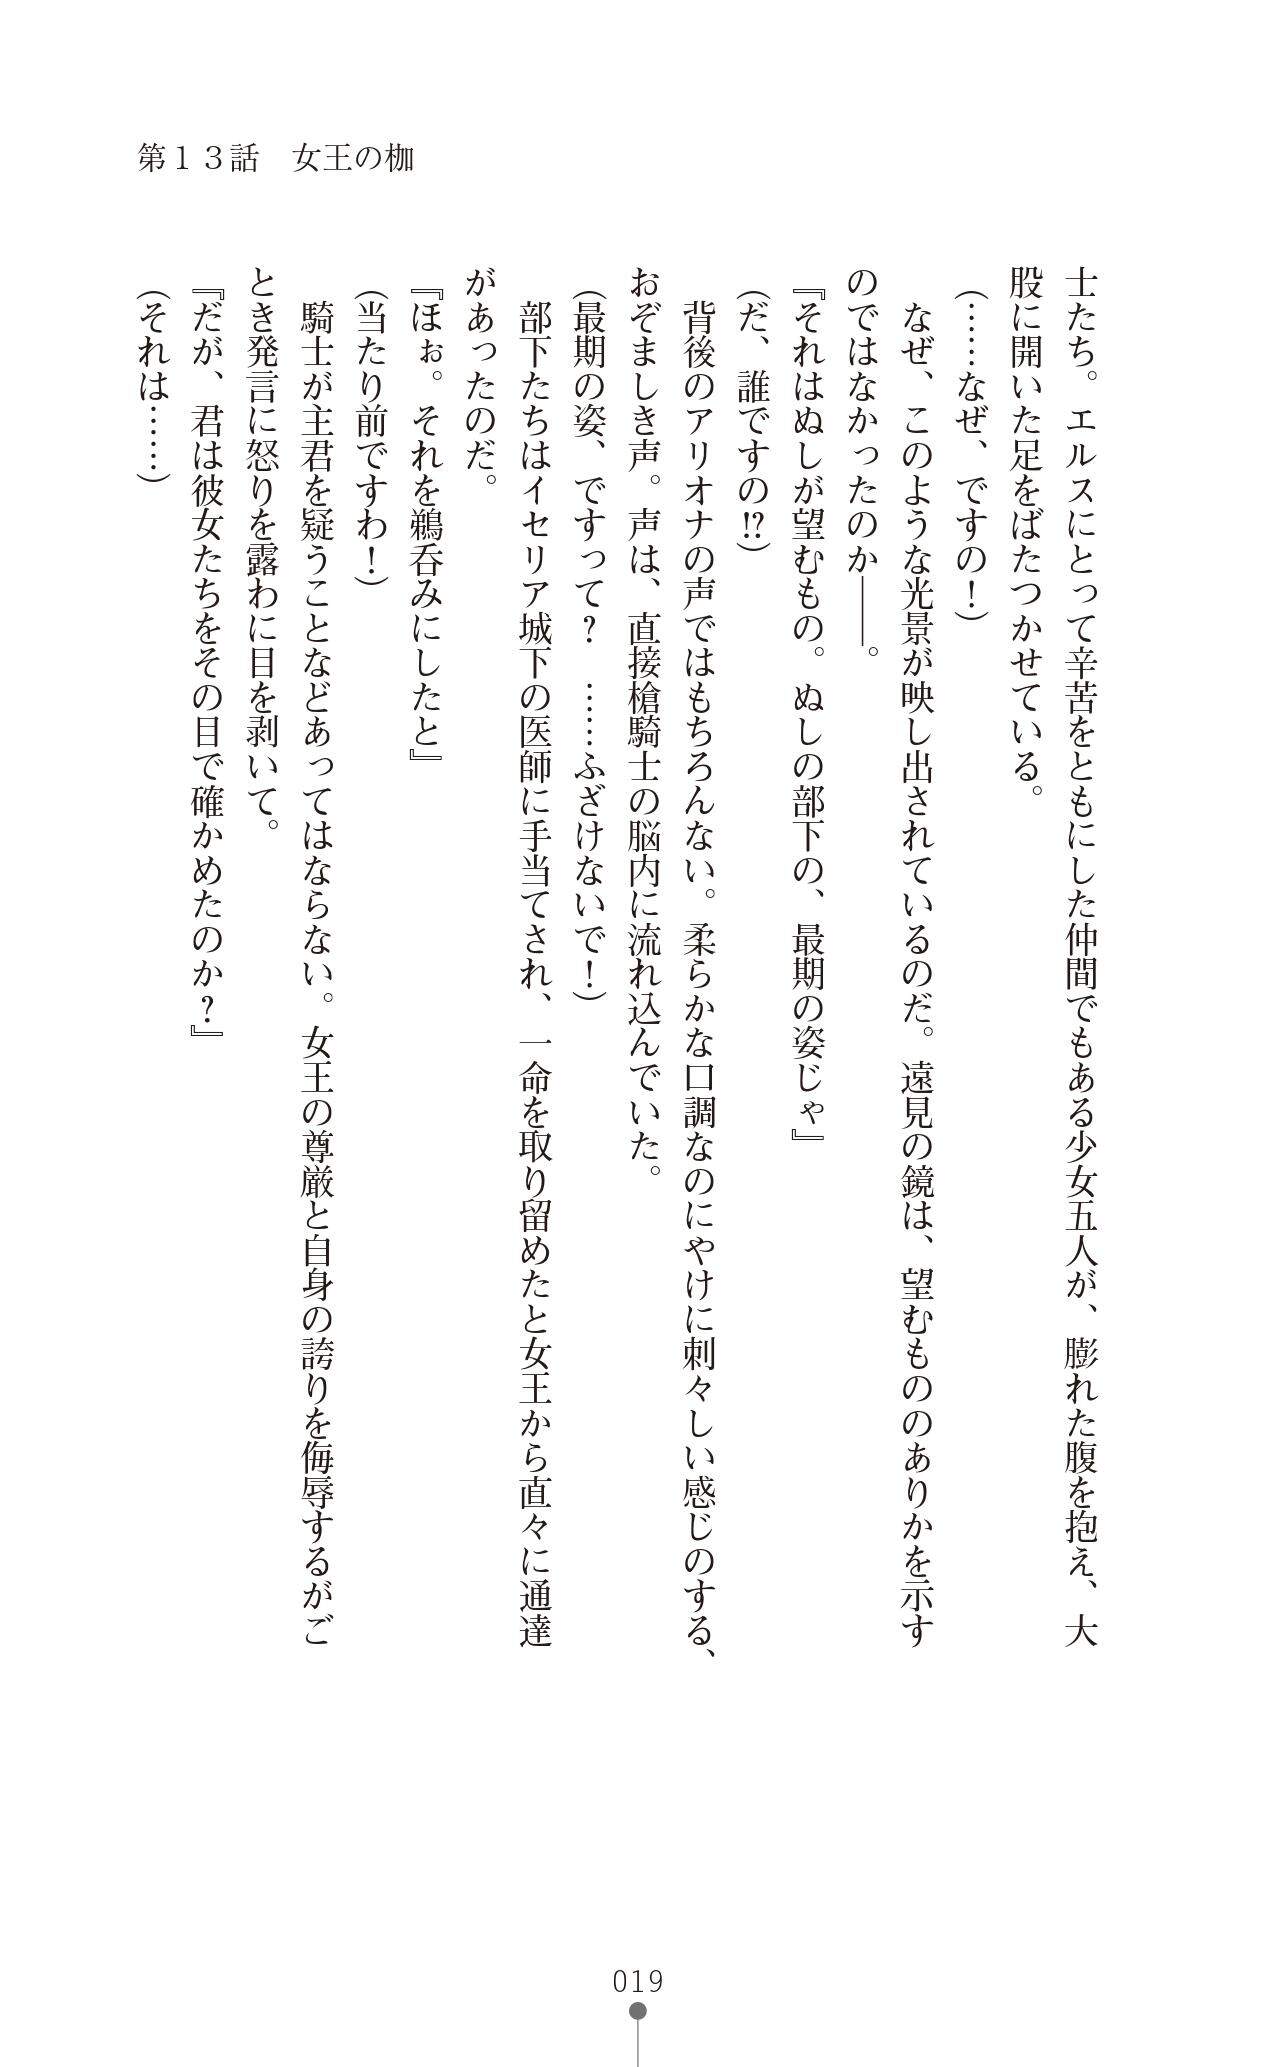 第１３話　女王の枷
士たち。エルスにとって辛苦をともにした仲間でもある少女五人が、膨れた腹を抱え、大
股に開いた足をばたつかせている。
（……なぜ、ですの！）
　なぜ、このような光景が映し出されているのだ。遠見の鏡は、望むもののありかを示す
のではなかったのか――。
『それはぬしが望むもの。ぬしの部下の、最期の姿じゃ』
（だ、誰ですの!?）
　背後のアリオナの声ではもちろんない。柔らかな口調なのにやけに刺々しい感じのする、
おぞましき声。声は、直接槍騎士の脳内に流れ込んでいた。
（最期の姿、ですって？　……ふざけないで！）
　部下たちはイセリア城下の医師に手当てされ、一命を取り留めたと女王から直々に通達
があったのだ。
『ほぉ。それを鵜呑みにしたと』
（当たり前ですわ！）
　騎士が主君を疑うことなどあってはならない。女王の尊厳と自身の誇りを侮辱するがご
とき発言に怒りを露わに目を剥いて。
『だが、君は彼女たちをその目で確かめたのか？』
（それは……）
019